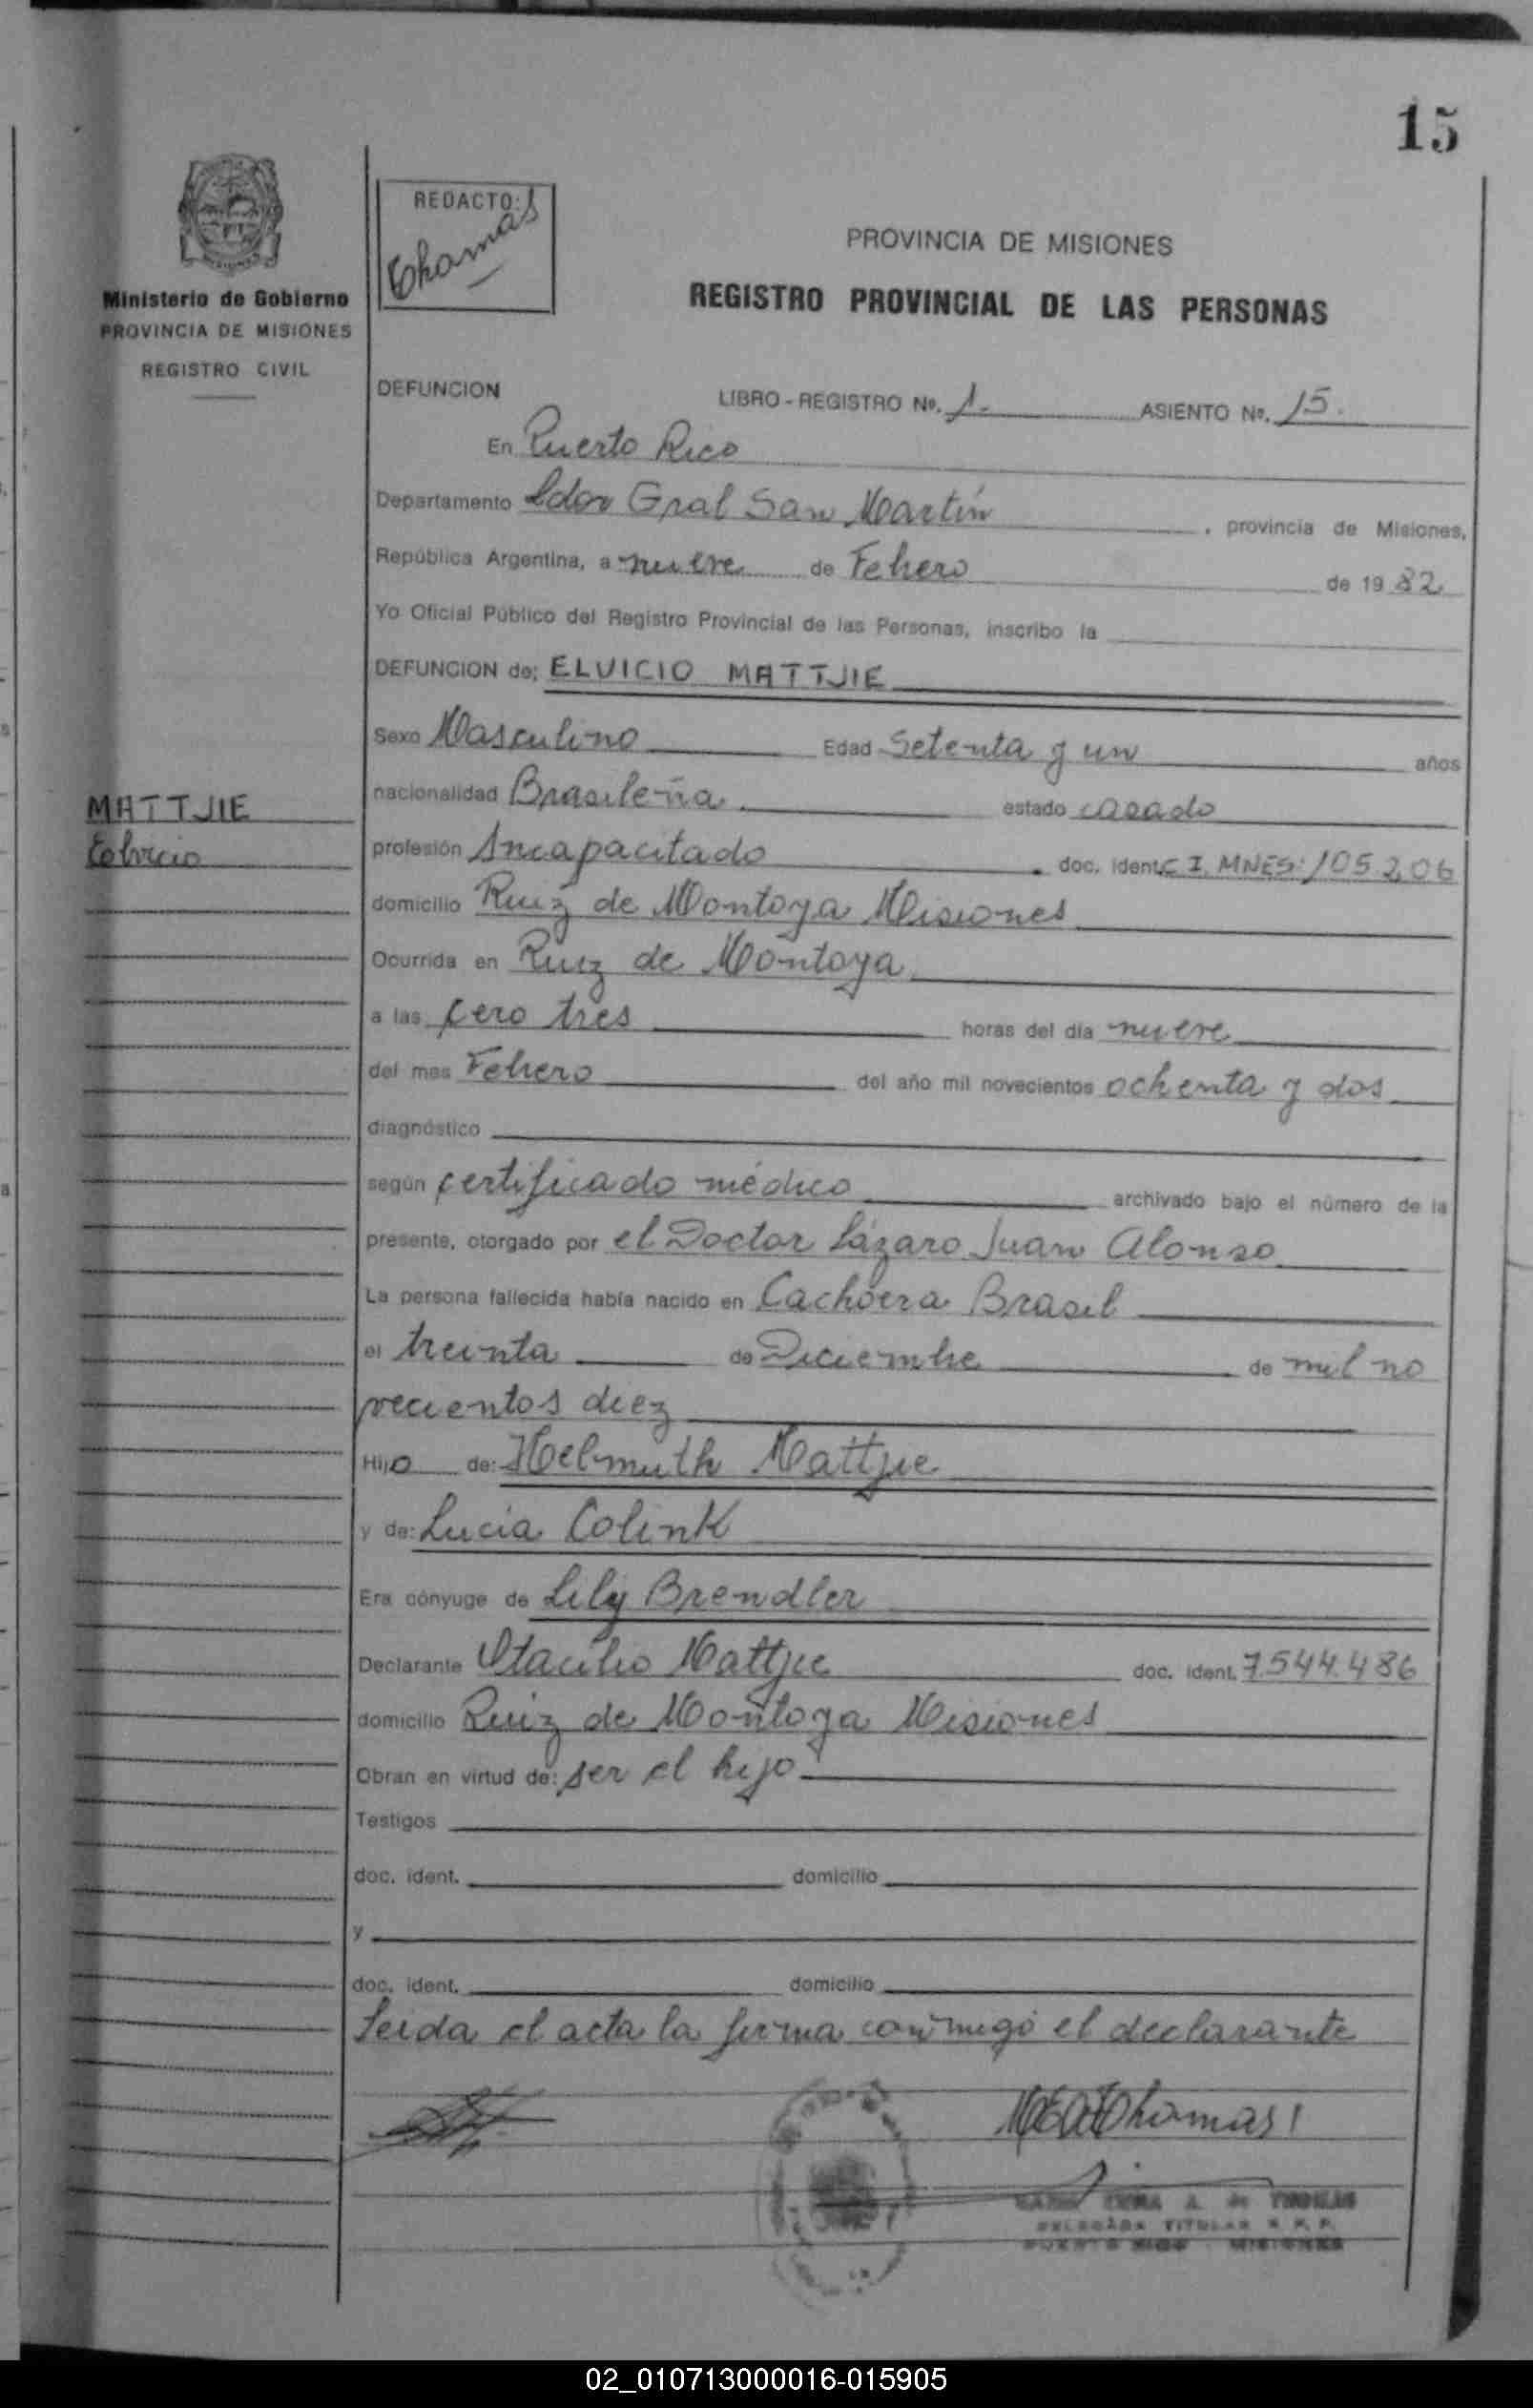 15
REDACTO:
Thomas
Ministerio de Gobierno
PROVINCIA DE MISIONES
REGISTRO CIVIL
PROVINCIA DE MISIONES
REGISTRO PROVINCIAL DE LAS PERSONAS
DEFUNCION LIBRO - REGISTRO Nº. 1.- ASIENTO Nº. 15.
En Puerto Rico
Departamento Ldor Gral San Martín, provincia de Misiones,
República Argentina, a nueve de Febrero de 1982
Yo Oficial Público del Registro Provincial de las Personas, inscribo la
DEFUNCION de: ELVICIO MATTJIE
Sexo Masculino Edad Setenta y un años
nacionalidad Brasileña estado casado
MATTJIE
Elvicio
profesión Incapacitado. doc. ident. C I. MNES: 105.206
domicilio Ruiz de Montoya Misiones
Ocurrida en Ruiz de Montoya
a las cero tres horas del día nueve
del mes Febrero del año mil novecientos ochenta y dos
diagnóstico
según certificado médico archivado bajo el número de la
presente, otorgado por el Doctor Lázaro Juan Alonso
La persona fallecida había nacido en Cachoera Brasil
el treinta de Diciembre de mil no
vecientos diez
Hijo de: Helmuth Mattjie
y de: Lucia Colink
Era cónyuge de Lily Brendler
Declarante Otacilio Mattjie doc. ident. 7.544.486
domicilio Ruiz de Montoya Misiones
Obran en virtud de: ser el hijo
Testigos
doc. ident. domicilio
y
doc. ident. domicilio
Leida el acta la firma conmigo el declarante
Thomas
DELEGADA TITULAR R. P. P.
PUERTO RICO - MISIONES
02_010713000016-015905